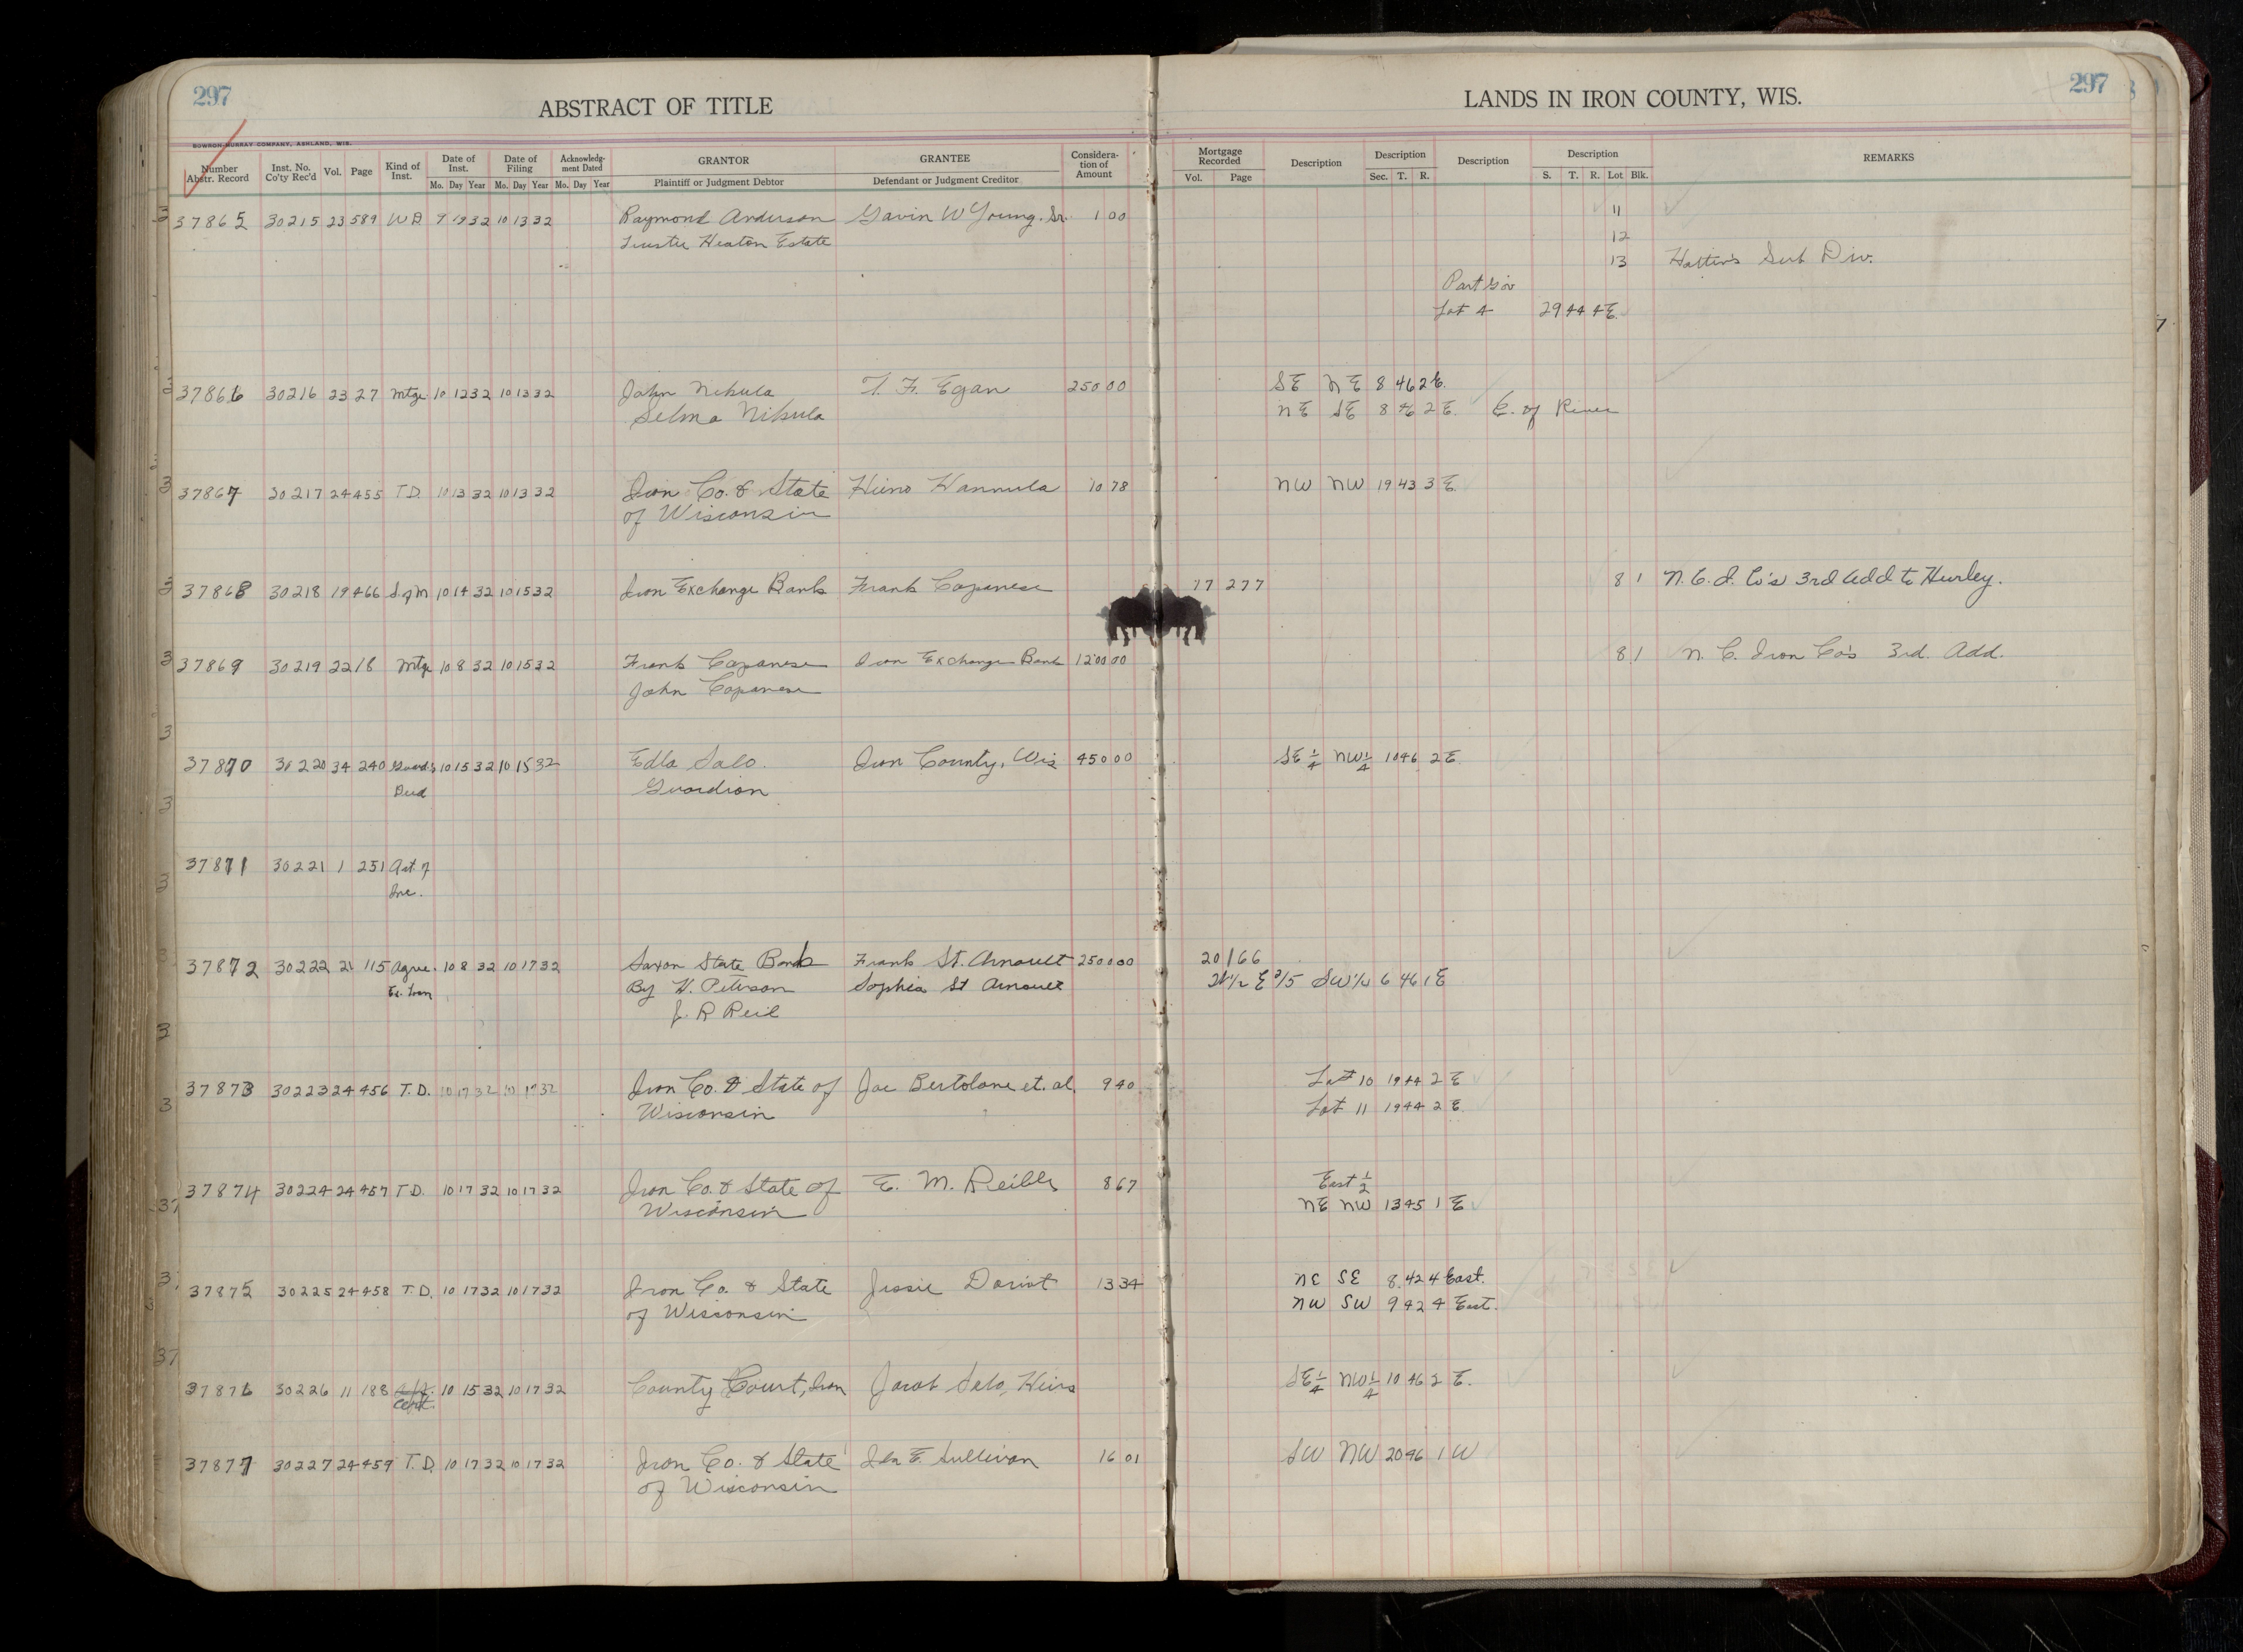 297
ABSTRACT OF TITLE
LANDS IN IRON COUNTY, WIS.
297
BOWRON-MURRAY COMPANY, ASHLAND, WIS.
Number Abstr. Record Inst. No. Co'ty Rec'd Vol. Page Kind of Inst. Date of Inst. Date of Filing Acknowledg-ment Dated GRANTOR GRANTEE Considera-tion of Amount Mortgage Recorded Description Description Description Description REMARKS
Mo. Day Year Mo. Day Year Mo. Day Year Plaintiff or Judgment Debtor Defendant or Judgment Creditor Vol. Page Sec. T. R. S. T. R. Lot Blk.
37865 30215 23 589 WD 9 19 32 10 13 32 Raymond Anderson Gavin W Young. Sr. 1 00 11
Trustee Heaton Estate 12
13 Sub Div.
Part Gov
Lot 4 29 44 4E.
37866 30216 23 27 Mtge 10 12 32 10 13 32 John Nikula T. F. Egan 250 00 SE NE 8 46 2E.
Selma Nikula NE SE 8 46 2E. E. of River
37867 30217 24 455 T.D. 10 13 32 10 13 32 Iron Co. & State Heino Hannula 10 78 NW NW 19 43 3 E
of Wisconsin
37868 30218 19 466 S. of M 10 14 32 10 15 32 Iron Exchange Bank Frank Caponese 17 277 8 1 N. C. I. Co's 3rd Add to Hurley.
37869 30219 22 18 Mtge 10 8 32 10 15 32 Frank Caponese Iron Exchange Bank 1200 00 8 1 N. C. Iron Co's 3rd. Add.
John Caponese
37870 30220 34 240 Guard's 10 15 32 10 15 32 Edla Salo. Iron County, Wis 450 00 SE 1/4 NW 1/4 10 46 2E
Deed Guardian
37871 30221 1 251 Art of
Inc.
37872 30222 21 115 Agree. 10 8 32 10 17 32 Saxon State Bank Frank St. Arnault 2500 00 20 166
Ex. By H. Peterson Sophia St Arnault SW 1/4 6 46 1 E
J. R Reil
37873 30223 24 456 T.D. 10 17 32 10 17 32 Iron Co. & State of Joe Bertolone et. al. 9 40 Lot 10 19 44 2 E
Wisconsin Lot 11 19 44 2 E.
37874 30224 24 457 T.D. 10 17 32 10 17 32 Iron Co. & State of E. M. Reible 8 67 East 1/2
Wisconsin NE NW 13 45 1 E
37875 30225 24 458 T.D. 10 17 32 10 17 32 Iron Co. & State Jessie Doriot 13 34 NE SE 8 42 4 East.
of Wisconsin NW SW 9 42 4 East.
37876 30226 11 188 10 15 32 10 17 32 County Court, Iron Jacob Salo, Heirs SE 1/4 NW 1/4 10 46 2 E.
Cert.
37877 30227 24 459 T.D. 10 17 32 10 17 32 Iron Co. & State Ida E. Sullivan 16 01 SW NW 20 46 1 W
of Wisconsin